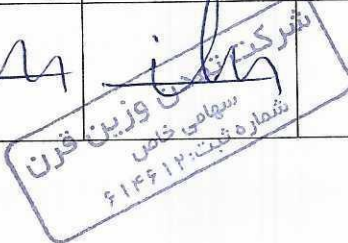 شرکت تمدن وزین قرن
سهامی خاص
شماره ثبت: ۶۱۴۶۱۲